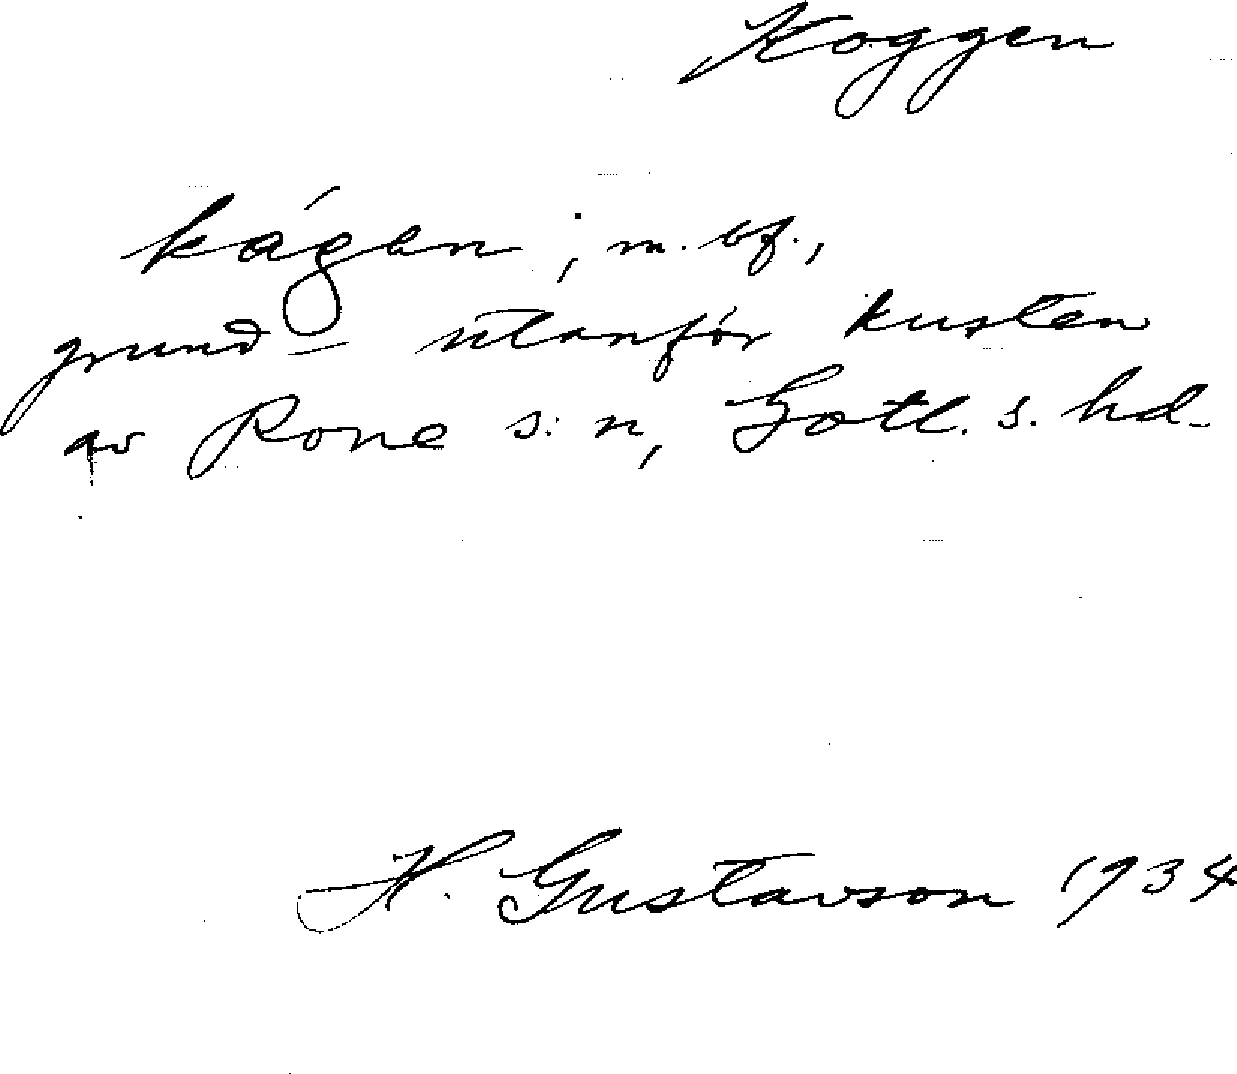 Koggen
kágen, m. bf.,
grund utanför kusten
av Rone s:n, Gotl. s. hd.
H. Gustavson 1934